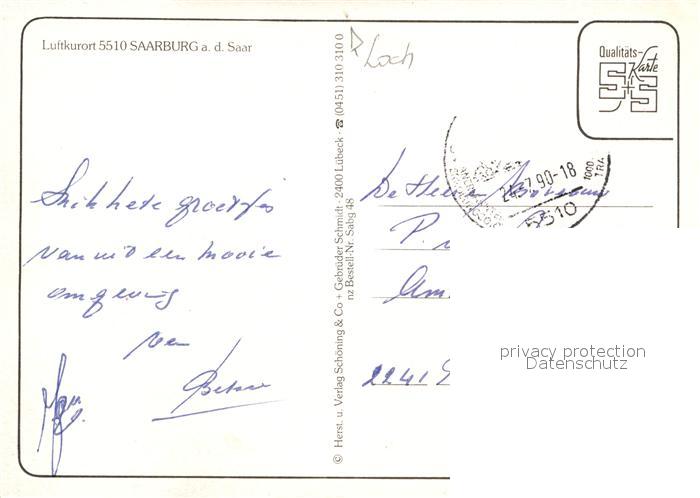 Luftkurort 5510 SAARBURG a. d. Saar
Loch
Qualitäts-
Karte
S+S
24.-7.90-18
1000
TRA
5510
hete groetjes
van uit een mooie
omgeving
van
De Heer
P.
Am
2241
© Herst. u. Verlag Schöning & Co + Gebrüder Schmidt · 2400 Lübeck · ☎ (0451) 310 310 0
nz Bestell-Nr. Sabg 48
privacy protection
Datenschutz